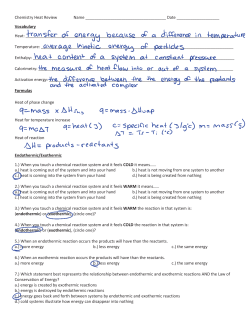 Chemistry Heat Review Name Date
Vocabulary
Heat: transfer of energy because of a difference in temperature
Temperature: average kinetic energy of particles
Enthalpy: heat content of a system at constant pressure
Calorimetry: the measure of heat flow into or out of a system
Activation energy: the difference between the energy of the reactants
and the activated complex
Formulas
Heat of phase change
q=mass x ΔHfus q=mass·ΔHvap
Heat for temperature increase
q=mcΔT q=heat (J) c=specific heat (J/g°C) m=mass (g)
ΔT = Tf - Ti (°C)
Heat of reaction
ΔH = products - reactants
Endothermic/Exothermic
1.) When you touch a chemical reaction system and it feels COLD it means…..
a) heat is coming out of the system and into your hand b) heat is not moving from one system to another
c) heat is coming into the system from your hand d) heat is being created from nothing
2.) When you touch a chemical reaction system and it feels WARM it means…..
a) heat is coming out of the system and into your hand b) heat is not moving from one system to another
c) heat is coming into the system from your hand d) heat is being created from nothing
3.) When you touch a chemical reaction system and it feels WARM the reaction in that system is:
(endothermic) or (exothermic) (circle one)?
4.) When you touch a chemical reaction system and it feels COLD the reaction in that system is:
(endothermic) or (exothermic) (circle one)?
5.) When an endothermic reaction occurs the products will have than the reactants.
a.) more energy b.) less energy c.) the same energy
6.) When an exothermic reaction occurs the products will have than the reactants.
a.) more energy b.) less energy c.) the same energy
7.) Which statement best represents the relationship between endothermic and exothermic reactions AND the Law of
Conservation of Energy?
a.) energy is created by exothermic reactions
b.) energy is destroyed by endothermic reactions
c.) energy goes back and forth between systems by endothermic and exothermic reactions
d.) cold systems illustrate how energy can disappear from nothing